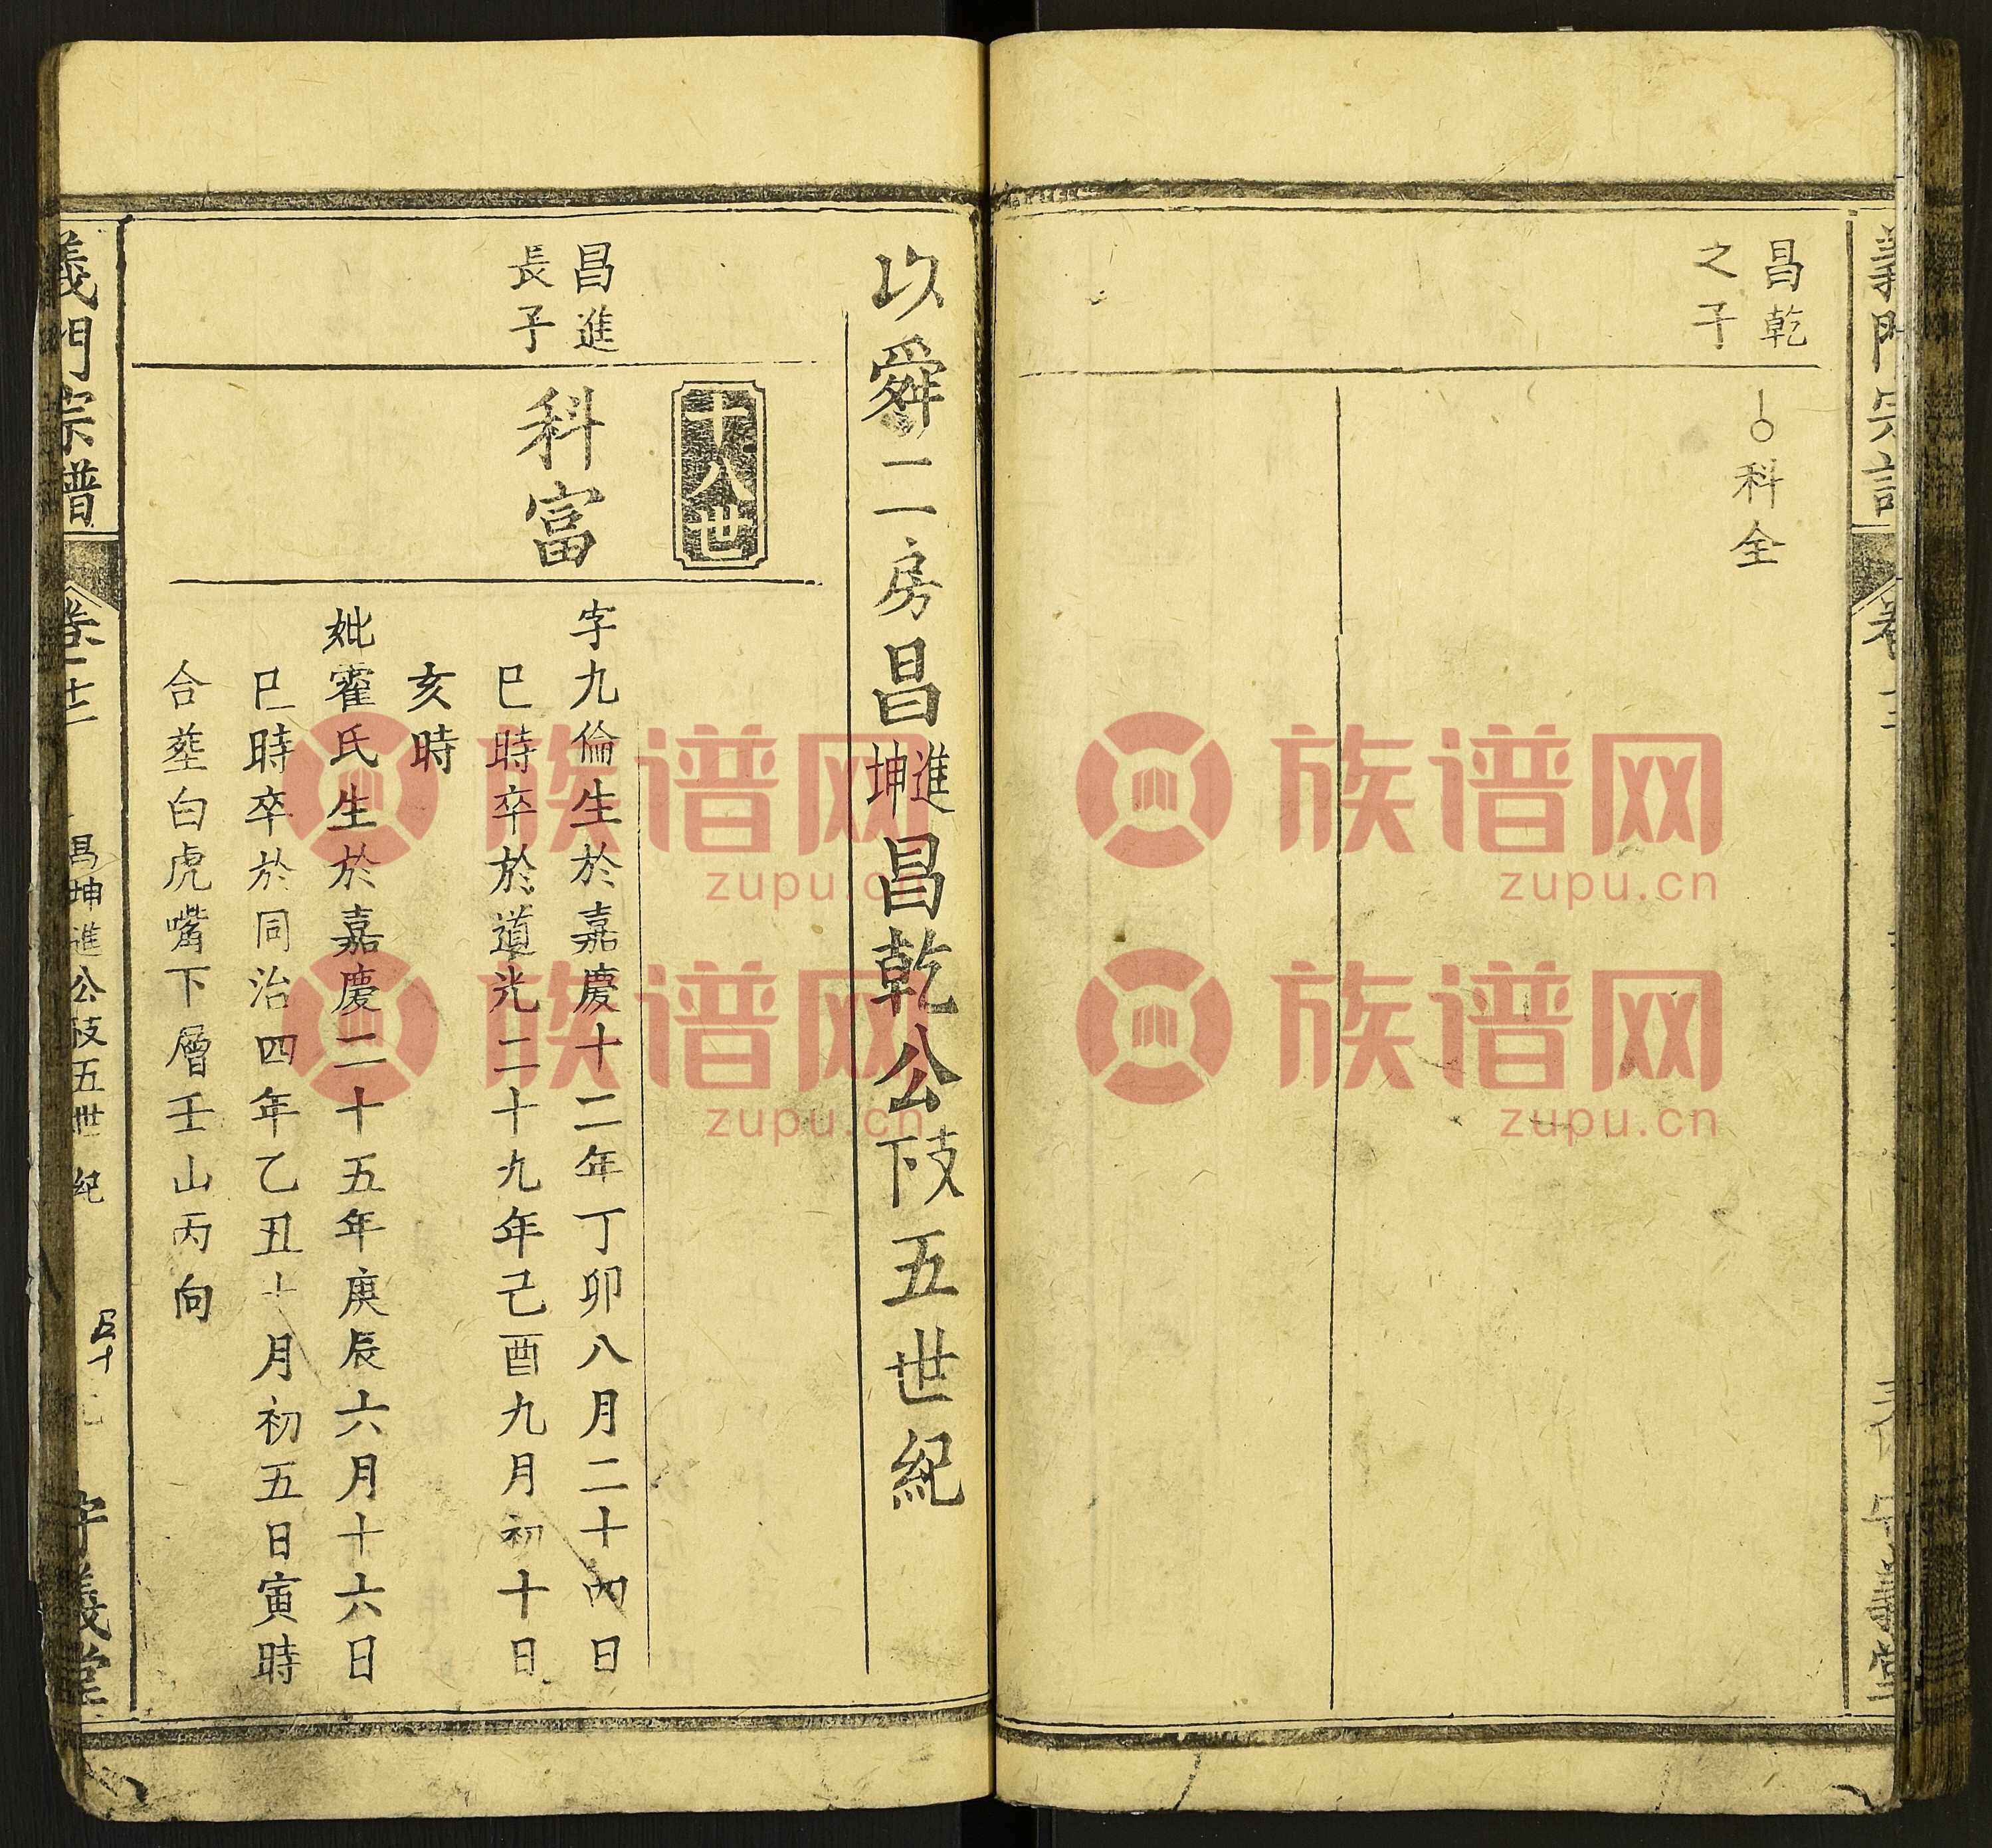 昌乾
之子
科全
以舜二房昌進坤昌乾公下支五世紀
十八世
昌進
長子
科富
字九倫生於嘉慶十二年丁卯八月二十四日
巳時卒於道光二十九年己酉九月初十日
亥時
妣霍氏生於嘉慶二十五年庚辰六月十六日
巳時卒於同治四年乙丑十月初五日寅時
合塟白虎嘴下層壬山丙向
義門宗譜
卷二十三
昌坤進公下支五世紀
守義堂
族谱网
zupu.cn
族谱网
zupu.cn
族谱网
zupu.cn
族谱网
zupu.cn